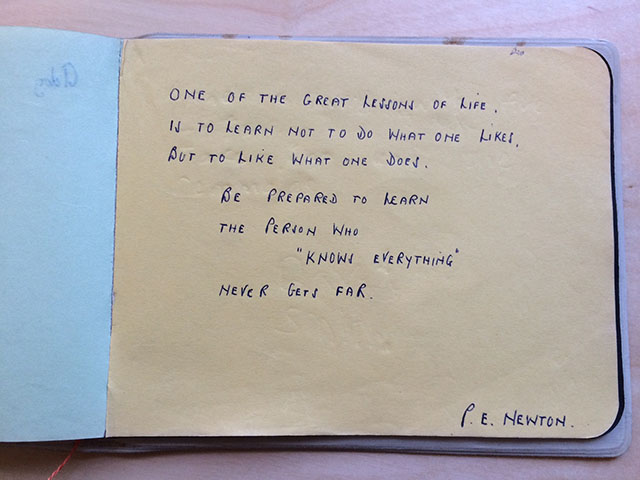 ONE OF THE GREAT LESSONS OF LIFE.
IS TO LEARN NOT TO DO WHAT ONE LIKES,
BUT TO LIKE WHAT ONE DOES.
BE PREPARED TO LEARN
THE PERSON WHO
"KNOWS EVERYTHING"
NEVER GETS FAR.
P. E. NEWTON.